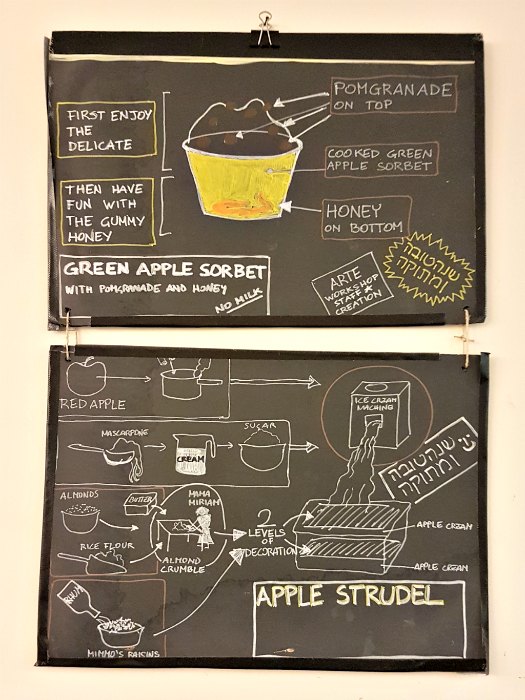 POMGRANADE
ON TOP
FIRST ENJOY
THE
DELICATE
COOKED GREEN
APPLE SORBET
THEN HAVE
FUN WITH
THE GUMMY
HONEY
HONEY
ON BOTTOM
GREEN APPLE SORBET
WITH POMGRANADE AND HONEY
NO MILK
ARTE
WORKSHOP
STAFF
CREATION
שנה טובה
ומתוקה
RED APPLE
ICE CREAM
MACHING
MASCARPONE
CREAM
SUGAR
שנה טובה
ומתוקה
ALMONDS
BUTTER
MIMA
MIRIAM
RICE FLOUR
ALMOND
CRUMBLE
2
LEVELS
OF
DECORATION
APPLE CREAM
APPLE CREAM
RHUM
MIMMO'S RAISINS
APPLE STRUDEL